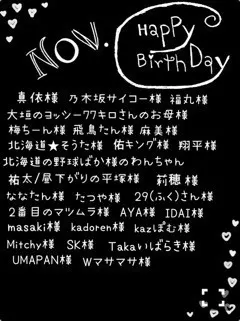 Nov.
Happy
Birthday
真依様 乃木坂サイコー様 福丸様
大垣のヨッシー77キロさんのお母様
梅ちーん様 飛鳥たん様 麻美様
北海道★そうた様 佑キング様 翔平様
北海道の野球ばか様のわんちゃん
祐太/昼下がりの平塚様 莉穂様
ななたん様 たつや様 29(ふく)さん様
2番目のマツムラ様 AYA様 IDAI様
masaki様 kadoren様 kazぽむ様
Mitchy様 SK様 Takaいばらき様
UMAPAN様 Wマサマサ様